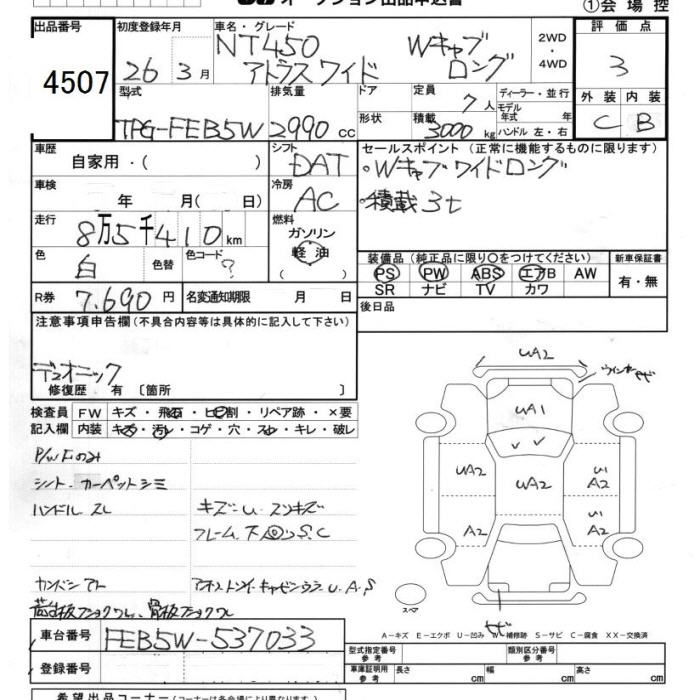 オークション出品申込書
①会場控
出品番号 4507
初度登録年月 26 3月
車名・グレード NT450 Wキャブ
アトラス ワイド ロング
2WD・4WD
評価点 3
型式 TPG-FEB5W
排気量 2990 cc
ドア
形状
定員 7人
積載 3000 kg
ディーラー・並行
モデル年式 年
ハンドル 左・右
外装 C
内装 B
車歴 自家用・( )
シフト DAT
セールスポイント (正常に機能するものに限ります)
・Wキャブワイドロング
・積載3t
車検 年 月( 日)
冷房 AC
走行 8万5千410km
燃料 ガソリン
軽油
( )
色 白
色替
色コード ?
装備品 (純正品に限り○をつけてください)
PS PW ABS エアB AW
SR ナビ TV カワ
新車保証書
有・無
R券 7.690円
名変通知期限 月 日
後日品
注意事項申告欄 (不具合内容等は具体的に記入して下さい)
デュオニック
修復歴 有 〔箇所 〕
検査員記入欄
FW キズ・飛石・ヒビ割・リペア跡・×要
内装 キズ・汚レ・コゲ・穴・スレ・キレ・破レ
P/W Fのみ
シート・カーペットシミ
ハンドルスレ
フレーム下回りS.C
UA2
UA1
UA2
UA2
A2
A2
A2
スペア
A−キズ E−エクボ U−凹み W−補修跡 S−サビ C−腐食 XX−交換済
車台番号 FEB5W-537033
登録番号
型式指定番号 参考
類別区分番号 参考
車庫証明用 参考 長さ cm 幅 cm 高さ cm
希望出品コーナー (コーナーは各会場により異なります)